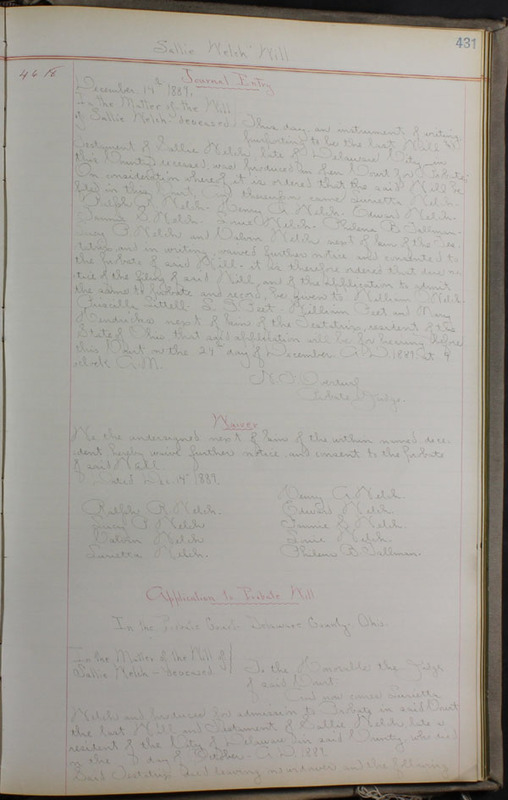 431
Sallie Welch Will
4618
Journal Entry
December 14th 1889.
In the Matter of the Will
of Sallie Welch deceased This day an instrument of writing
purporting to be the last Will &
testament of Sallie Welch, late of Delaware City in
this County deceased was produced in open Court for Probate
On consideration whereof it is ordered that the said Will be
filed in this Court, and thereupon came Luretta Welch.
Ralph R. Welch. Henry A. Welch. Edward Welch.
Fannie S. Welch. Welch. Philena B. Tallman.
P. Welch and Calvin Welch next of kin of the Tes-
tatrix and in writing waived further notice and consented to
the probate of said Will. it is therefore ordered that due no-
tice of the filing of said Will, and of the application to admit
the same to probate and record, be given to William Welch
Priscilla Littell S. Peet William Peet and Mary
Hendricks next of kin of the Testatrix, resident of the
State of Ohio that said application will be for hearing before
this Court on the 24th day of December A.D. 1889 at 9
oclock A.M.
N. F. Overturf
Probate Judge.
Waiver
We the undersigned next of kin of the within named dece-
dent hereby waive further notice, and consent to the probate
of said Will.
Dated Dec. 14th 1889.
Henry A. Welch.
Ralph R. Welch. Edward Welch.
P. Welch Fannie S. Welch.
Calvin Welch Welch.
Luretta Welch. Philena B. Tallman
Application to Probate Will
In the Probate Court Delaware County. Ohio.
In the Matter of the Will of
Sallie Welch deceased To the Honorable the Judge
of said Court:
And now comes Luretta
Welch and produces for admission to Probate in said Court
the last Will and Testament of Sallie Welch late a
resident of the City of Delaware in said County, who died
on the day of October A.D. 1889.
Said Testatrix died leaving no widower and the following